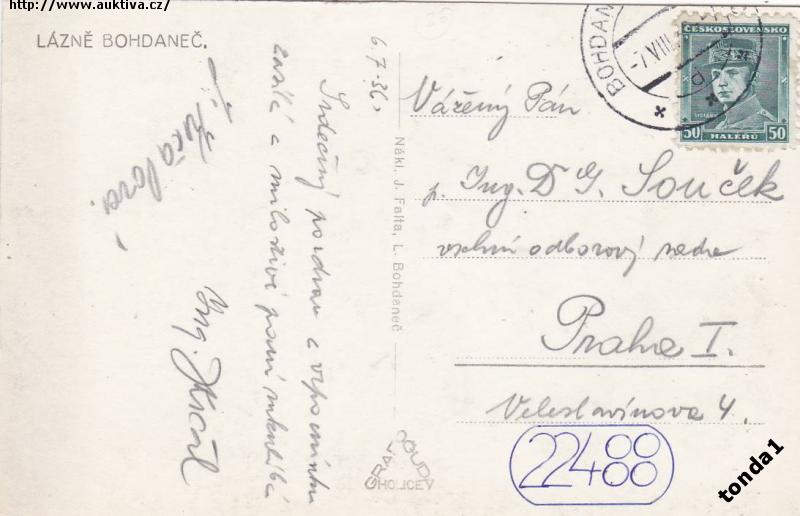 http://www.auktiva.cz/
LÁZNĚ BOHDANEČ.
6.7.36.
Srdečný pozdrav a vzpomínku
zasílá a milostivé paní
Ing.
Nákl. J. Falta, L. Bohdaneč
BOHDAN
-7.VIII
ČESKOSLOVENSKO
50 HALÉŘŮ 50
Vážený Pán
p. Ing. Dr G. Souček
vrchní odborový rada
Praha I.
Veleslavínova 4.
GRAFO ČUDA
HOLICE
22400
00
tonda1